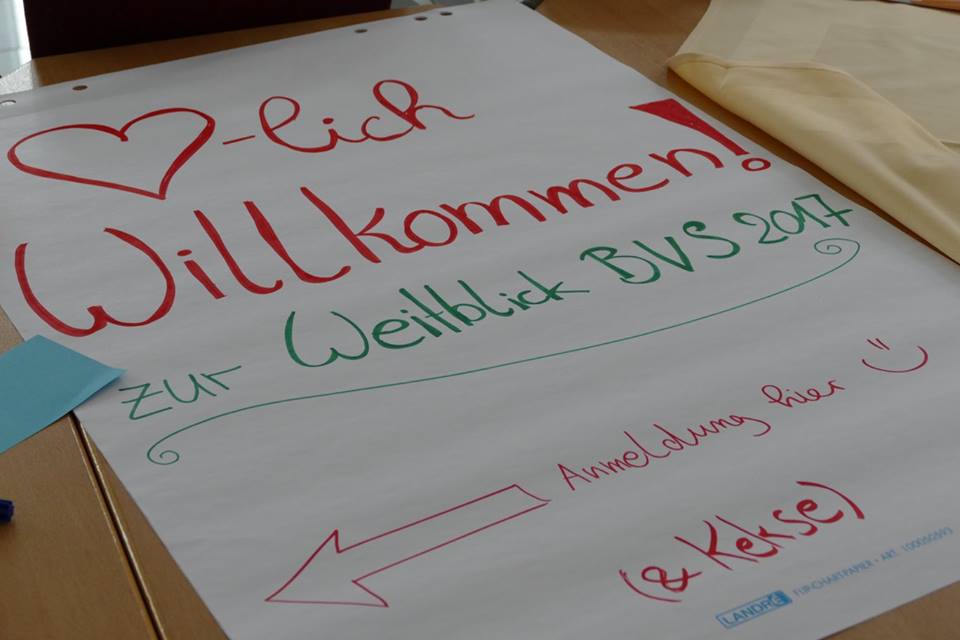 ♥-lich
Willkommen!
zur Weitblick BVS 2017
Anmeldung hier
(& Kekse)
LANDRÉ FLIPCHARTPAPIER • ART. 100050593